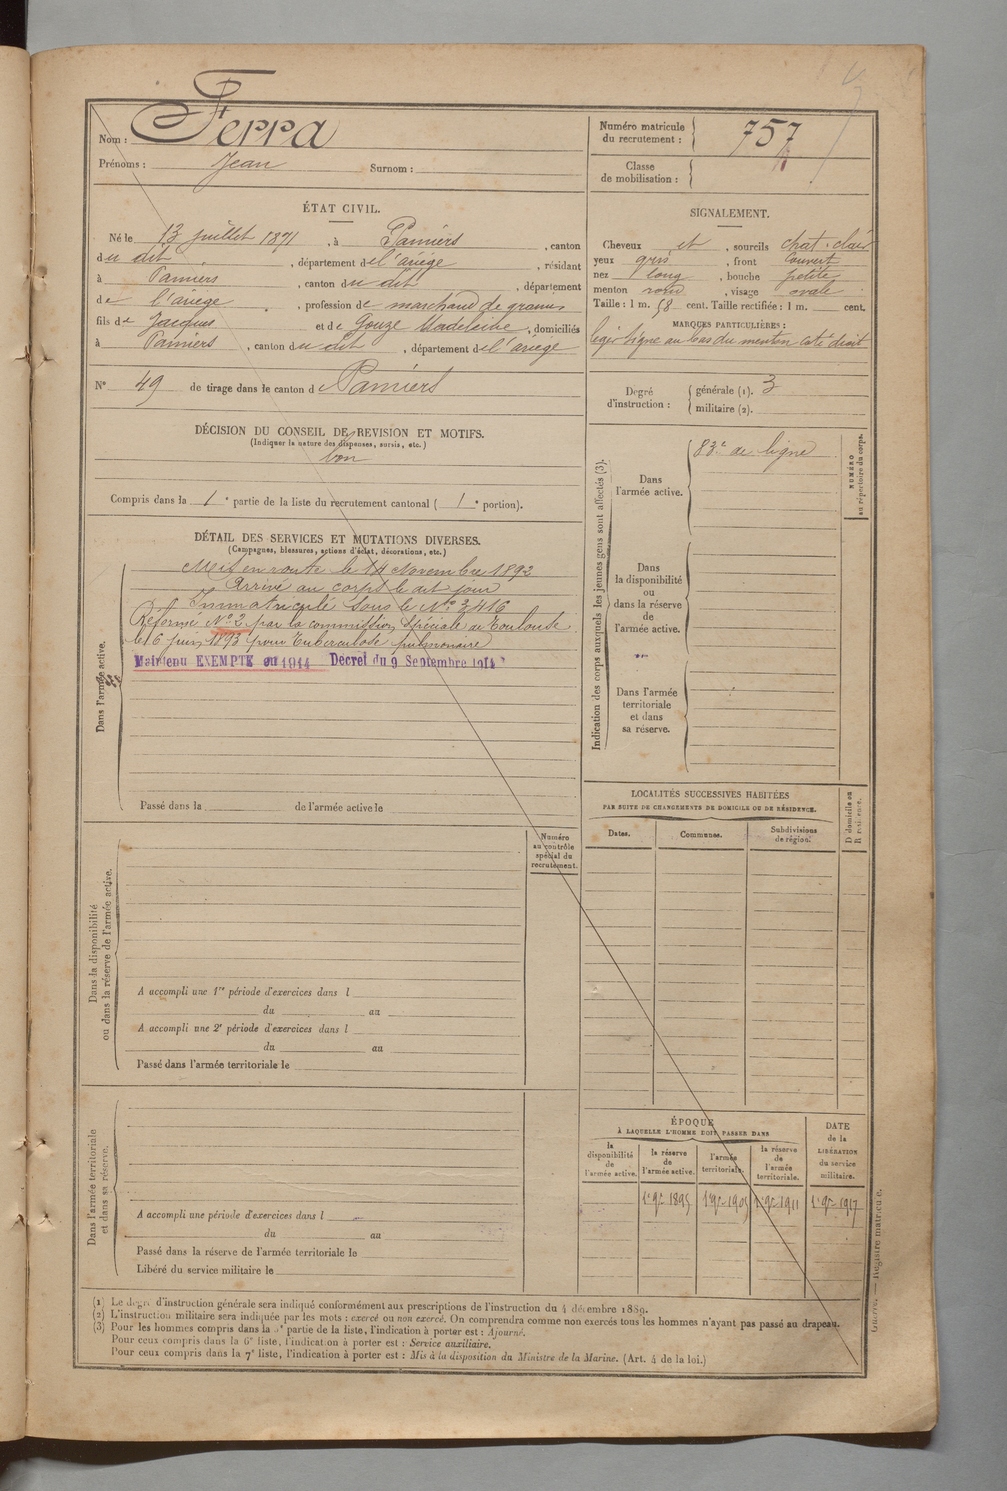 Nom : Ferra
Prénoms : Jean Surnom :
Numéro matricule du recrutement : 757
Classe de mobilisation :
ÉTAT CIVIL.
Né le 13 juillet 1871, à Pamiers, canton
du dit, département de l'ariège, résidant
à Pamiers, canton du dit, département
de l'ariège, profession de marchand de grains
fils de Jacques et de Gouze Madeleine, domiciliés
à Pamiers, canton du dit, département de l'ariège
N° 49 de tirage dans le canton de Pamiers
SIGNALEMENT.
Cheveux et, sourcils chat. clair
yeux gris, front Couvert
nez long, bouche petite
menton rond, visage ovale
Taille : 1 m. 58 cent. Taille rectifiée : 1 m. cent.
MARQUES PARTICULIÈRES :
léger signe au bas du menton coté droit
Degré d'instruction :
générale (1). 3
militaire (2).
DÉCISION DU CONSEIL DE REVISION ET MOTIFS.
(Indiquer la nature des dispenses, sursis, etc.)
bon
Compris dans la 1e partie de la liste du recrutement cantonal ( 1e portion).
DÉTAIL DES SERVICES ET MUTATIONS DIVERSES.
(Campagnes, blessures, actions d'éclat, décorations, etc.)
Dans l'armée active.
Mis en route le 14 Novembre 1892
Arrivé au corps le dit jour
Immatriculé sous le N° 3416
Réformé N° 2 par la commission spéciale de Toulouse
le 6 juin 1893 pour Tuberculose pulmonaire
Maintenu EXEMPTÉ en 1914 Décret du 9 Septembre 1914
Passé dans la de l'armée active le
Indication des corps auxquels les jeunes gens sont affectés (3).
Dans l'armée active.
83e de ligne
NUMÉRO au répertoire du corps.
Dans la disponibilité ou dans la réserve de l'armée active.
Dans l'armée territoriale et dans sa réserve.
LOCALITÉS SUCCESSIVES HABITÉES
PAR SUITE DE CHANGEMENTS DE DOMICILE OU DE RÉSIDENCE.
Dates. Communes. Subdivisions de région.
D domicile ou R résidence.
Numéro au contrôle spécial du recrutement.
Dans la disponibilité ou dans la réserve de l'armée active.
A accompli une 1re période d'exercices dans l
du au
A accompli une 2e période d'exercices dans l
du au
Passé dans l'armée territoriale le
Dans l'armée territoriale et dans sa réserve.
A accompli une période d'exercices dans l
du au
Passé dans la réserve de l'armée territoriale le
Libéré du service militaire le
ÉPOQUE
À LAQUELLE L'HOMME DOIT PASSER DANS
la disponibilité de l'armée active.
la réserve de l'armée active.
l'armée territoriale.
la réserve de l'armée territoriale.
DATE de la LIBÉRATION du service militaire.
1er 9bre 1895 1er 9bre 1905 1er 9bre 1911 1er 9bre 1917
(1) Le degré d'instruction générale sera indiqué conformément aux prescriptions de l'instruction du 4 décembre 1889.
(2) L'instruction militaire sera indiquée par les mots : exercé ou non exercé. On comprendra comme non exercés tous les hommes n'ayant pas passé au drapeau.
(3) Pour les hommes compris dans la 5e partie de la liste, l'indication à porter est : Ajourné.
Pour ceux compris dans la 6e liste, l'indication à porter est : Service auxiliaire.
Pour ceux compris dans la 7e liste, l'indication à porter est : Mis à la disposition du Ministre de la Marine. (Art. 4 de la loi.)
Registre matricule.